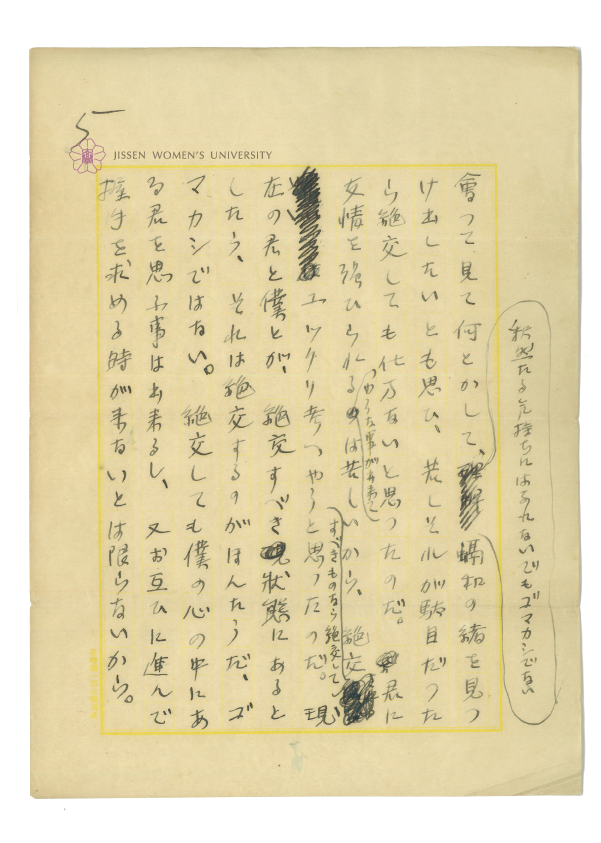 5
JISSEN WOMEN'S UNIVERSITY
釈然たる気持ちにはなれないでもゴマカシでない
會つて見て何とかして、融和の緒を見つ
け出したいとも思ひ、若しそれが駄目だつた
ら絶交しても仕方ないと思つたのだ。君に
友情を強ひられるのは苦しいから、絶交
やうな事があつて
すべきものなら絶交して、
ユックリ考へやうと思つたのだ。現
在の君と僕とが、絶交すべき状態にあると
したら、それは絶交するのがほんたうだ、ゴ
マカシではない。絶交しても僕の心の中にあ
る君を思ふ事は出来るし、又お互ひに進んで
握手を求める時が来ないとは限らないから。